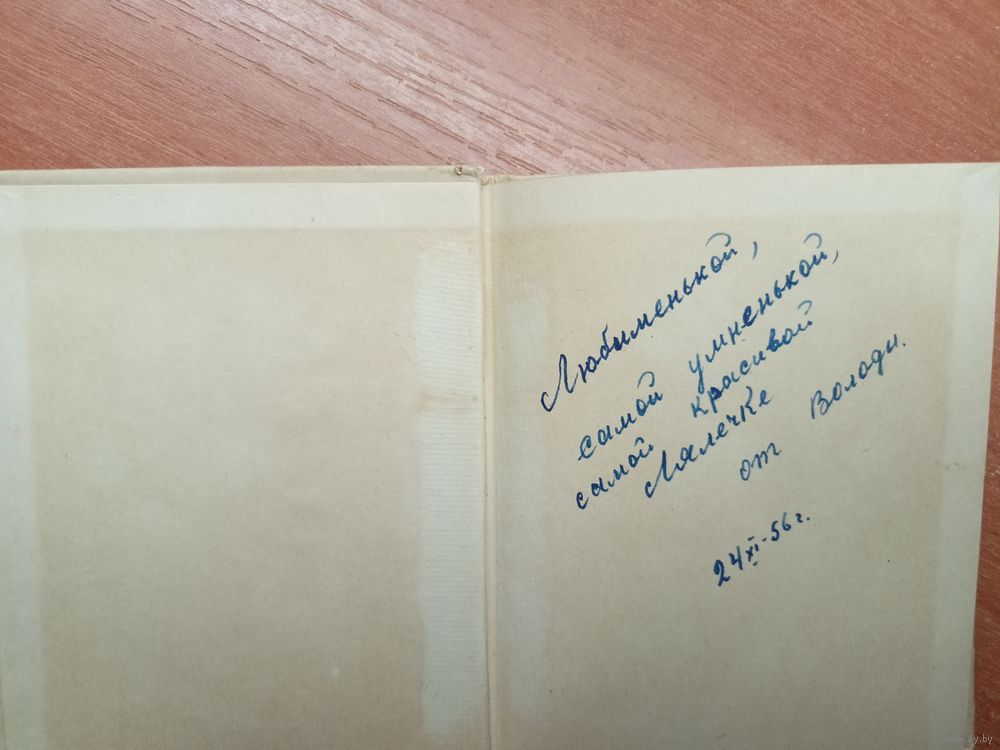 Любименькой,
самой умненькой,
самой красивой
Лялечке
от Володи.
24 XI-56 г.
ay.by